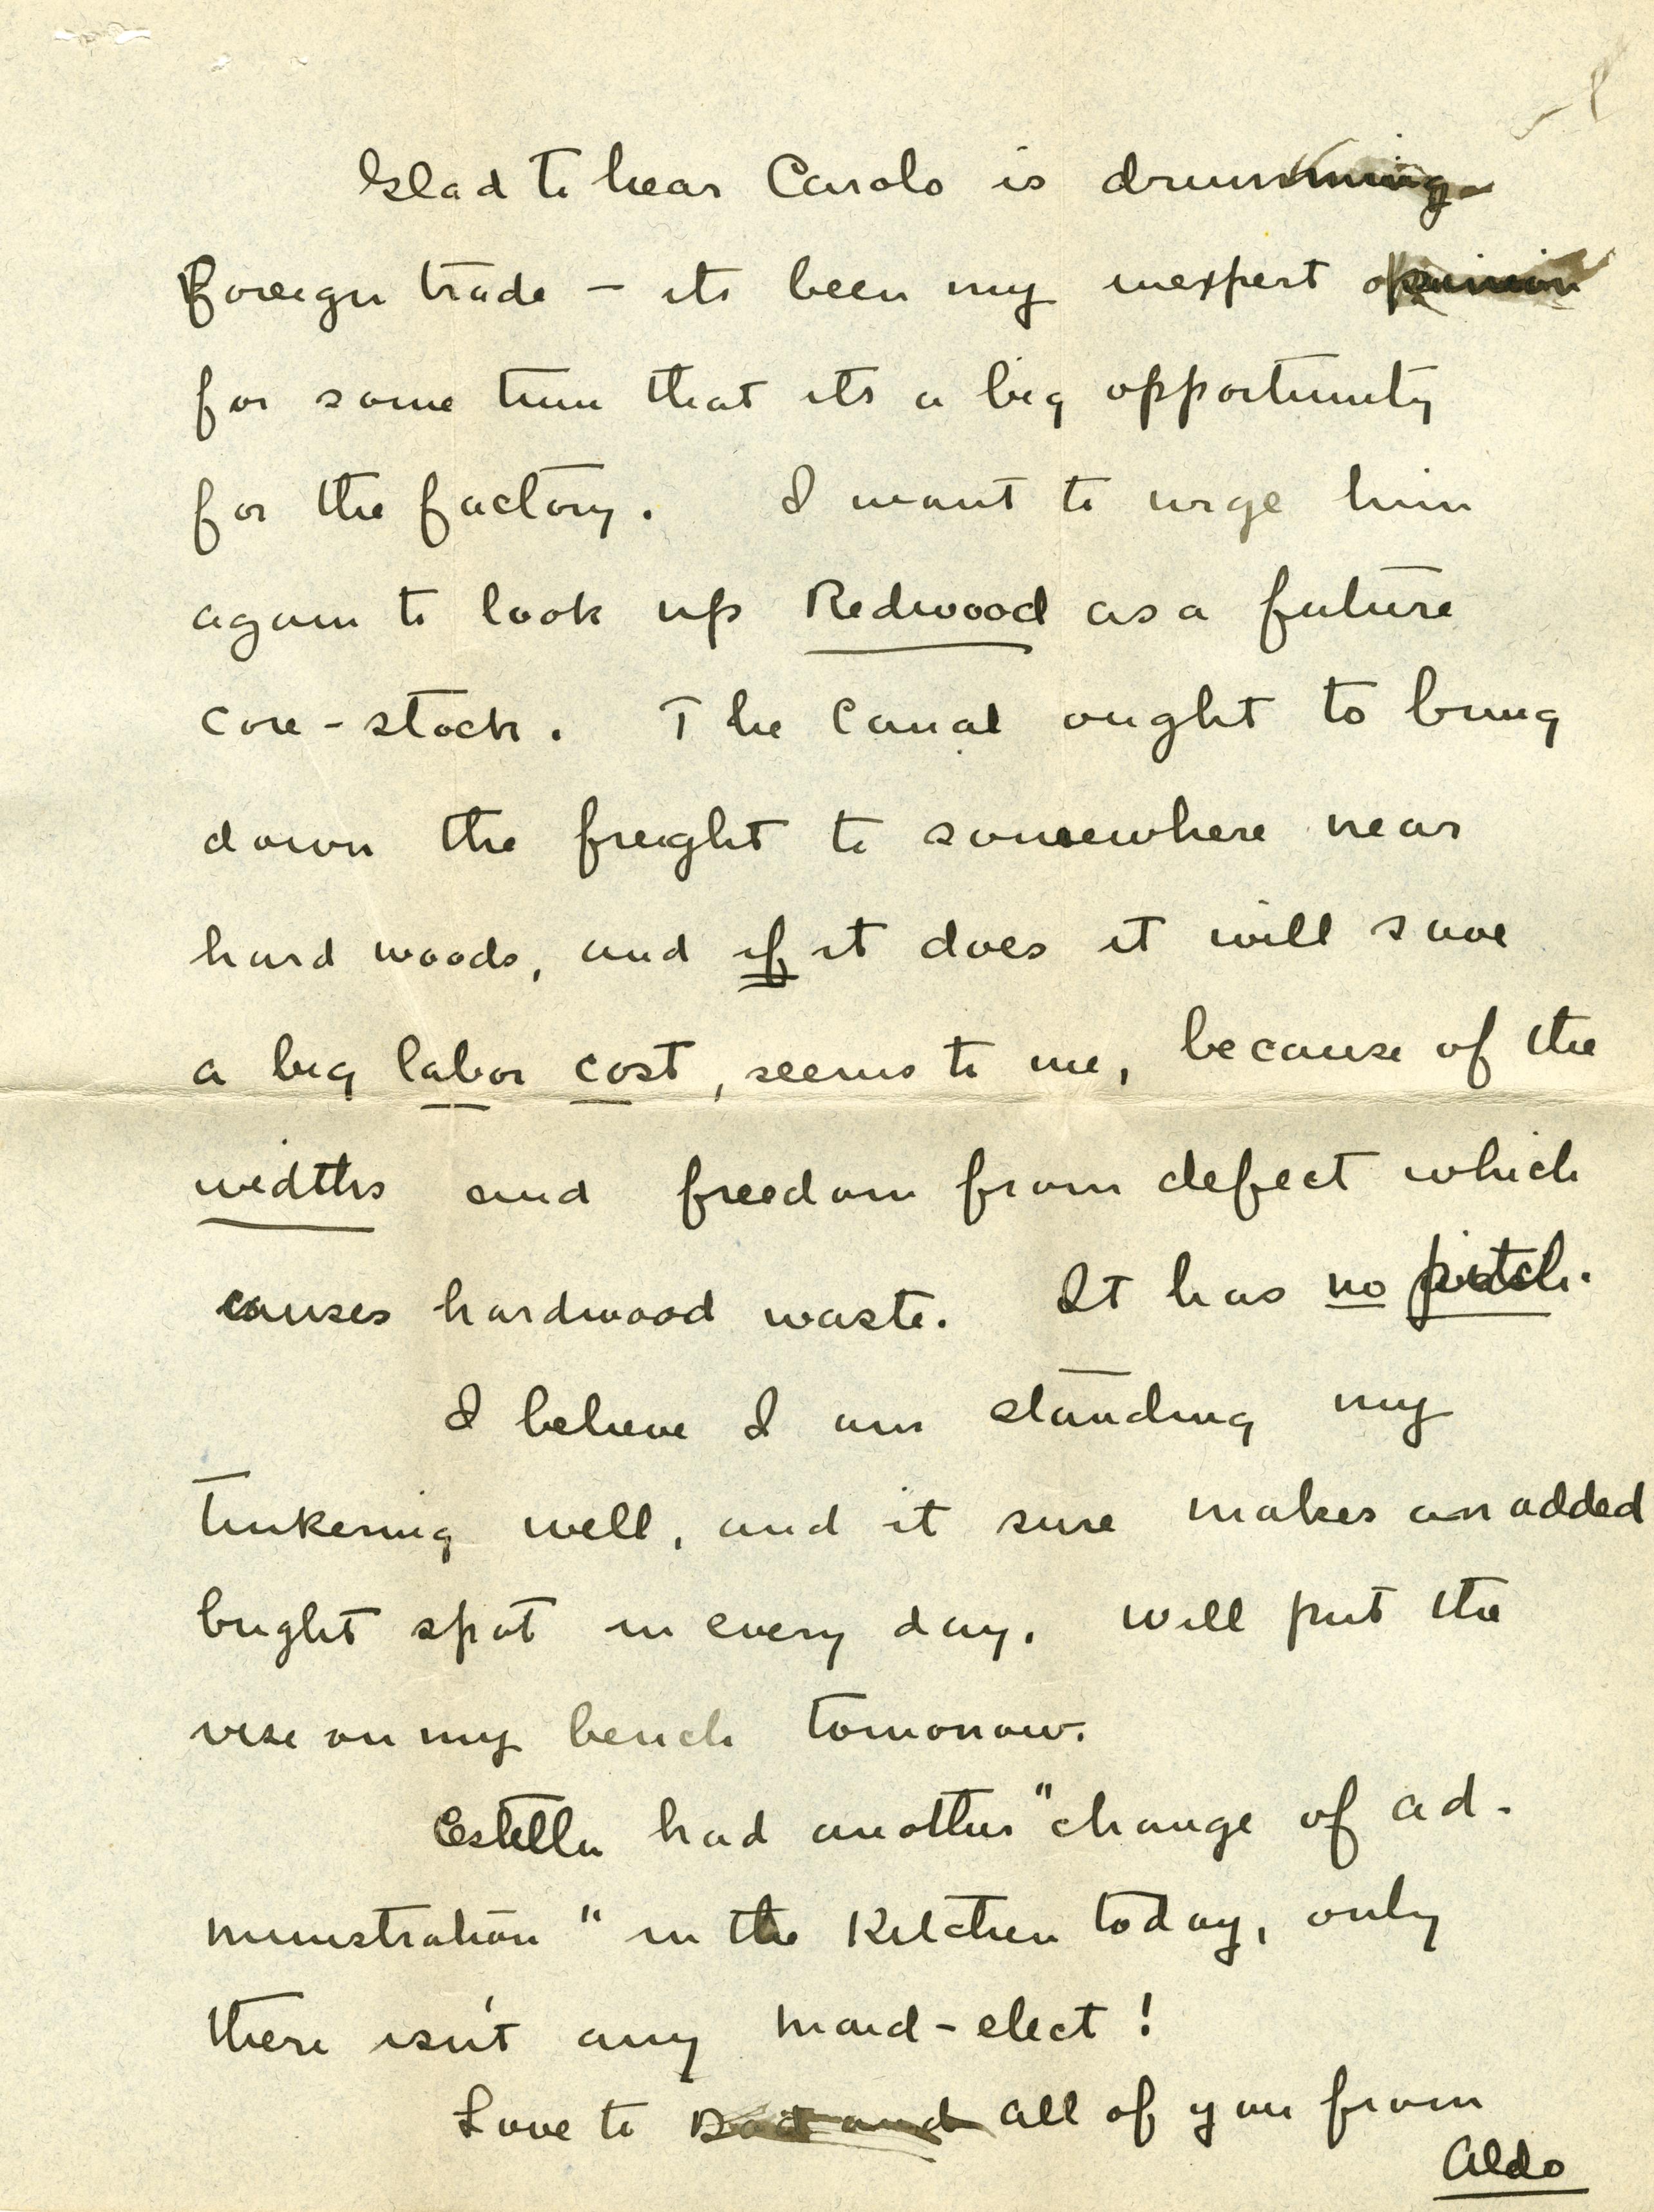 Glad to hear Carolo is drumming
Foreign trade - its been my inexpert opinion
for some time that its a big opportunity
for the factory. I want to urge him
again to look up Redwood as a future
core-stock. The Canal ought to bring
down the freight to somewhere near
hard woods, and if it does it will save
a big labor cost, seems to me, because of the
widths and freedom from defect which
causes hardwood waste. It has no pitch.
I believe I am standing my
tinkering well, and it sure makes an added
bright spot in every day. Will put the
vise on my bench tomorrow.
Estella had another "change of ad-
ministration" in the Kitchen today, only
there isn't any maid-elect!
Love to Dad and all of you from
Aldo